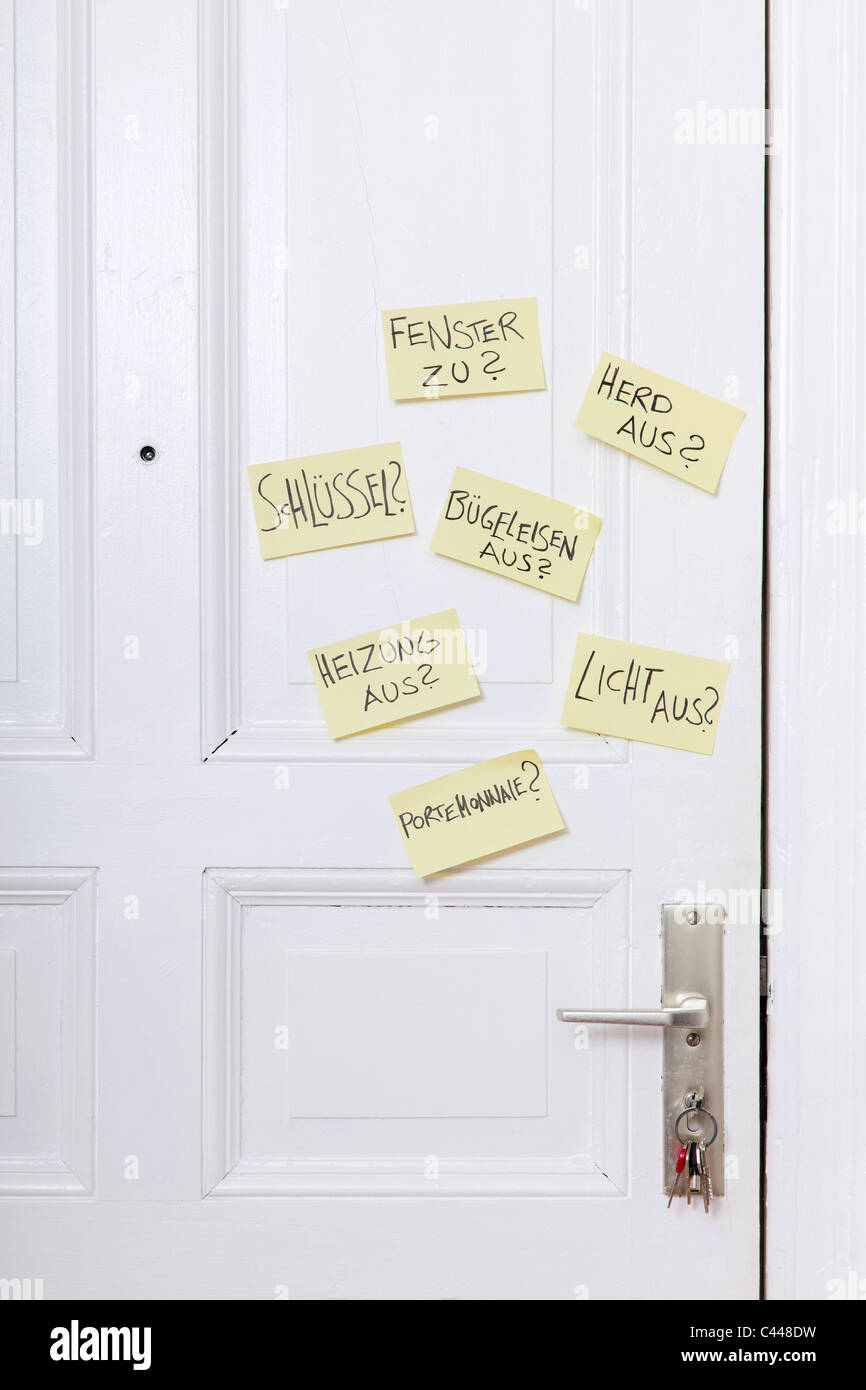 FENSTER
ZU?
HERD
AUS?
SCHLÜSSEL?
BÜGELEISEN
AUS?
HEIZUNG
AUS?
LICHT AUS?
PORTEMONNAIE?
alamy
Image ID: C448DW
www.alamy.com